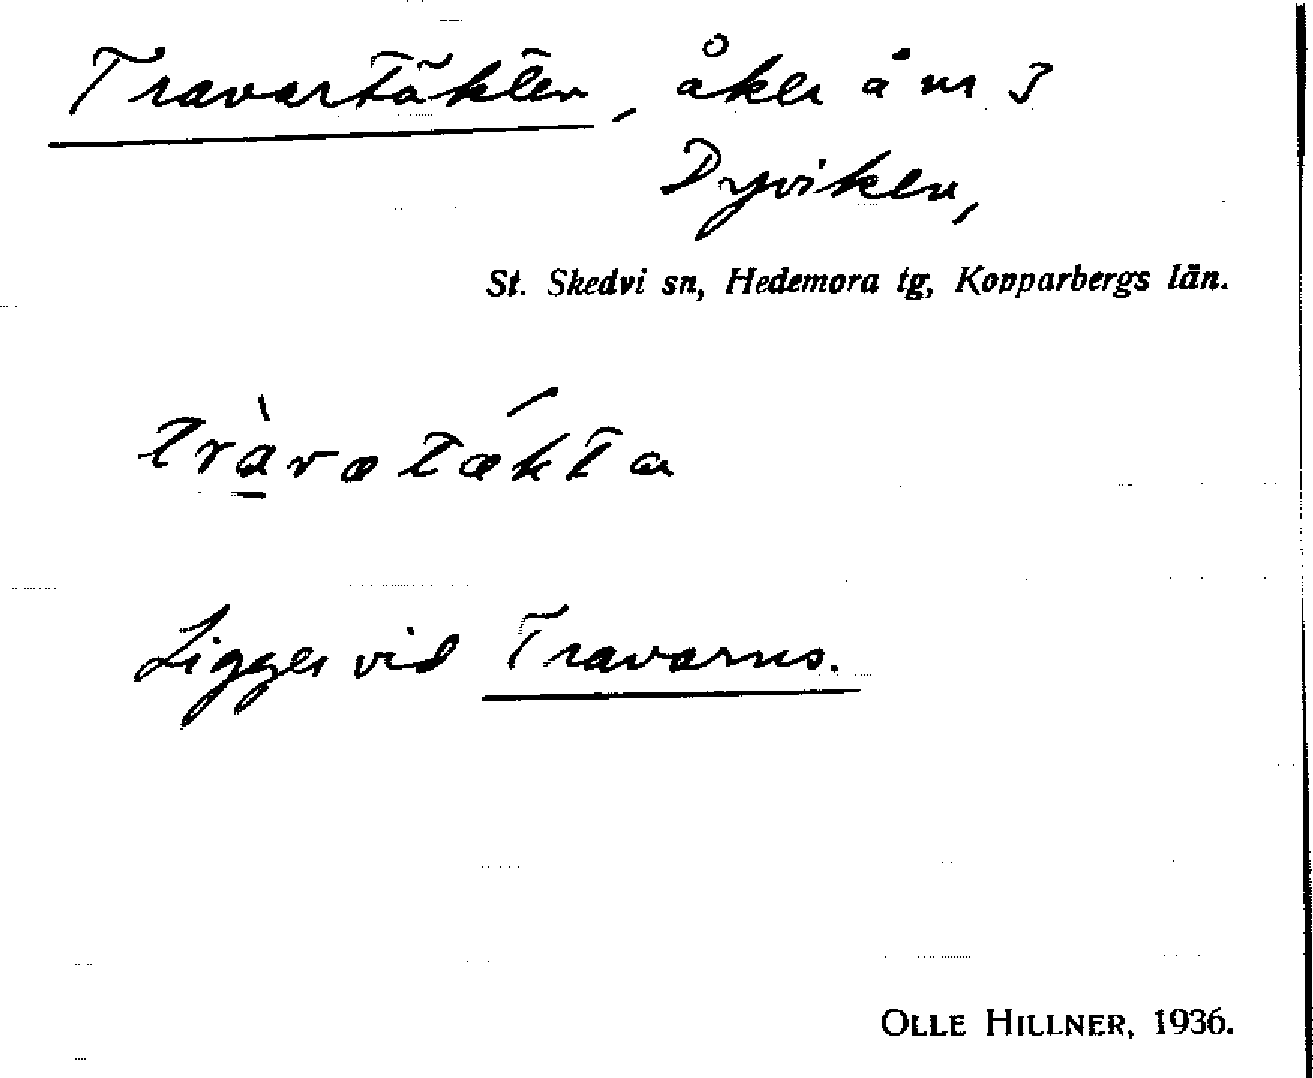 Travartäkten, åker å nr 3
Dyviken,
St. Skedvi sn, Hedemora tg, Kopparbergs län.
tràvatækta
Ligger vid Travarns.
OLLE HILLNER, 1936.